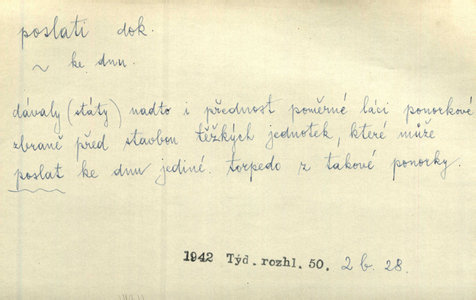 poslati dok.
~ ke dnu.
dávaly (státy) nadto i přednost poměrné láci ponorkové
zbraně před stavbou těžkých jednotek, které může
poslat ke dnu jediné torpedo z takové ponorky.
1942 Týd. rozhl. 50. 2 b. 28.